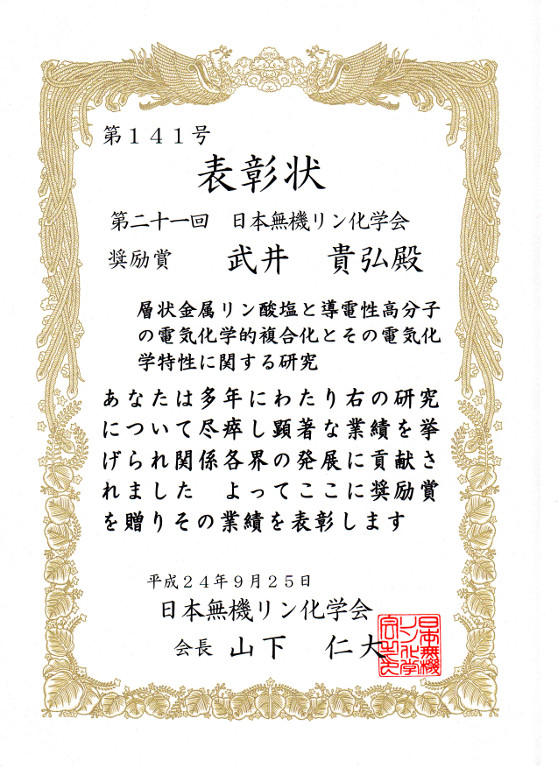 第１４１号
表彰状
第二十一回　日本無機リン化学会
奨励賞　武井　貴弘殿
層状金属リン酸塩と導電性高分子
の電気化学的複合化とその電気化
学特性に関する研究
あなたは多年にわたり右の研究
について尽瘁し顕著な業績を挙
げられ関係各界の発展に貢献さ
れました　よってここに奨励賞
を贈りその業績を表彰します
平成２４年９月２５日
日本無機リン化学会
会長　山下　仁大
日本無機
リン化学